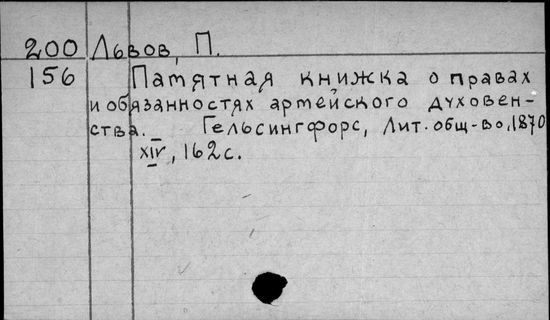 200 Львов, П.
156 Памятная книжка о правах
и обязанностях армейского духовен-
ства. Гельсингфорс, Лит. общ-во, 1870
XIV, 162 с.